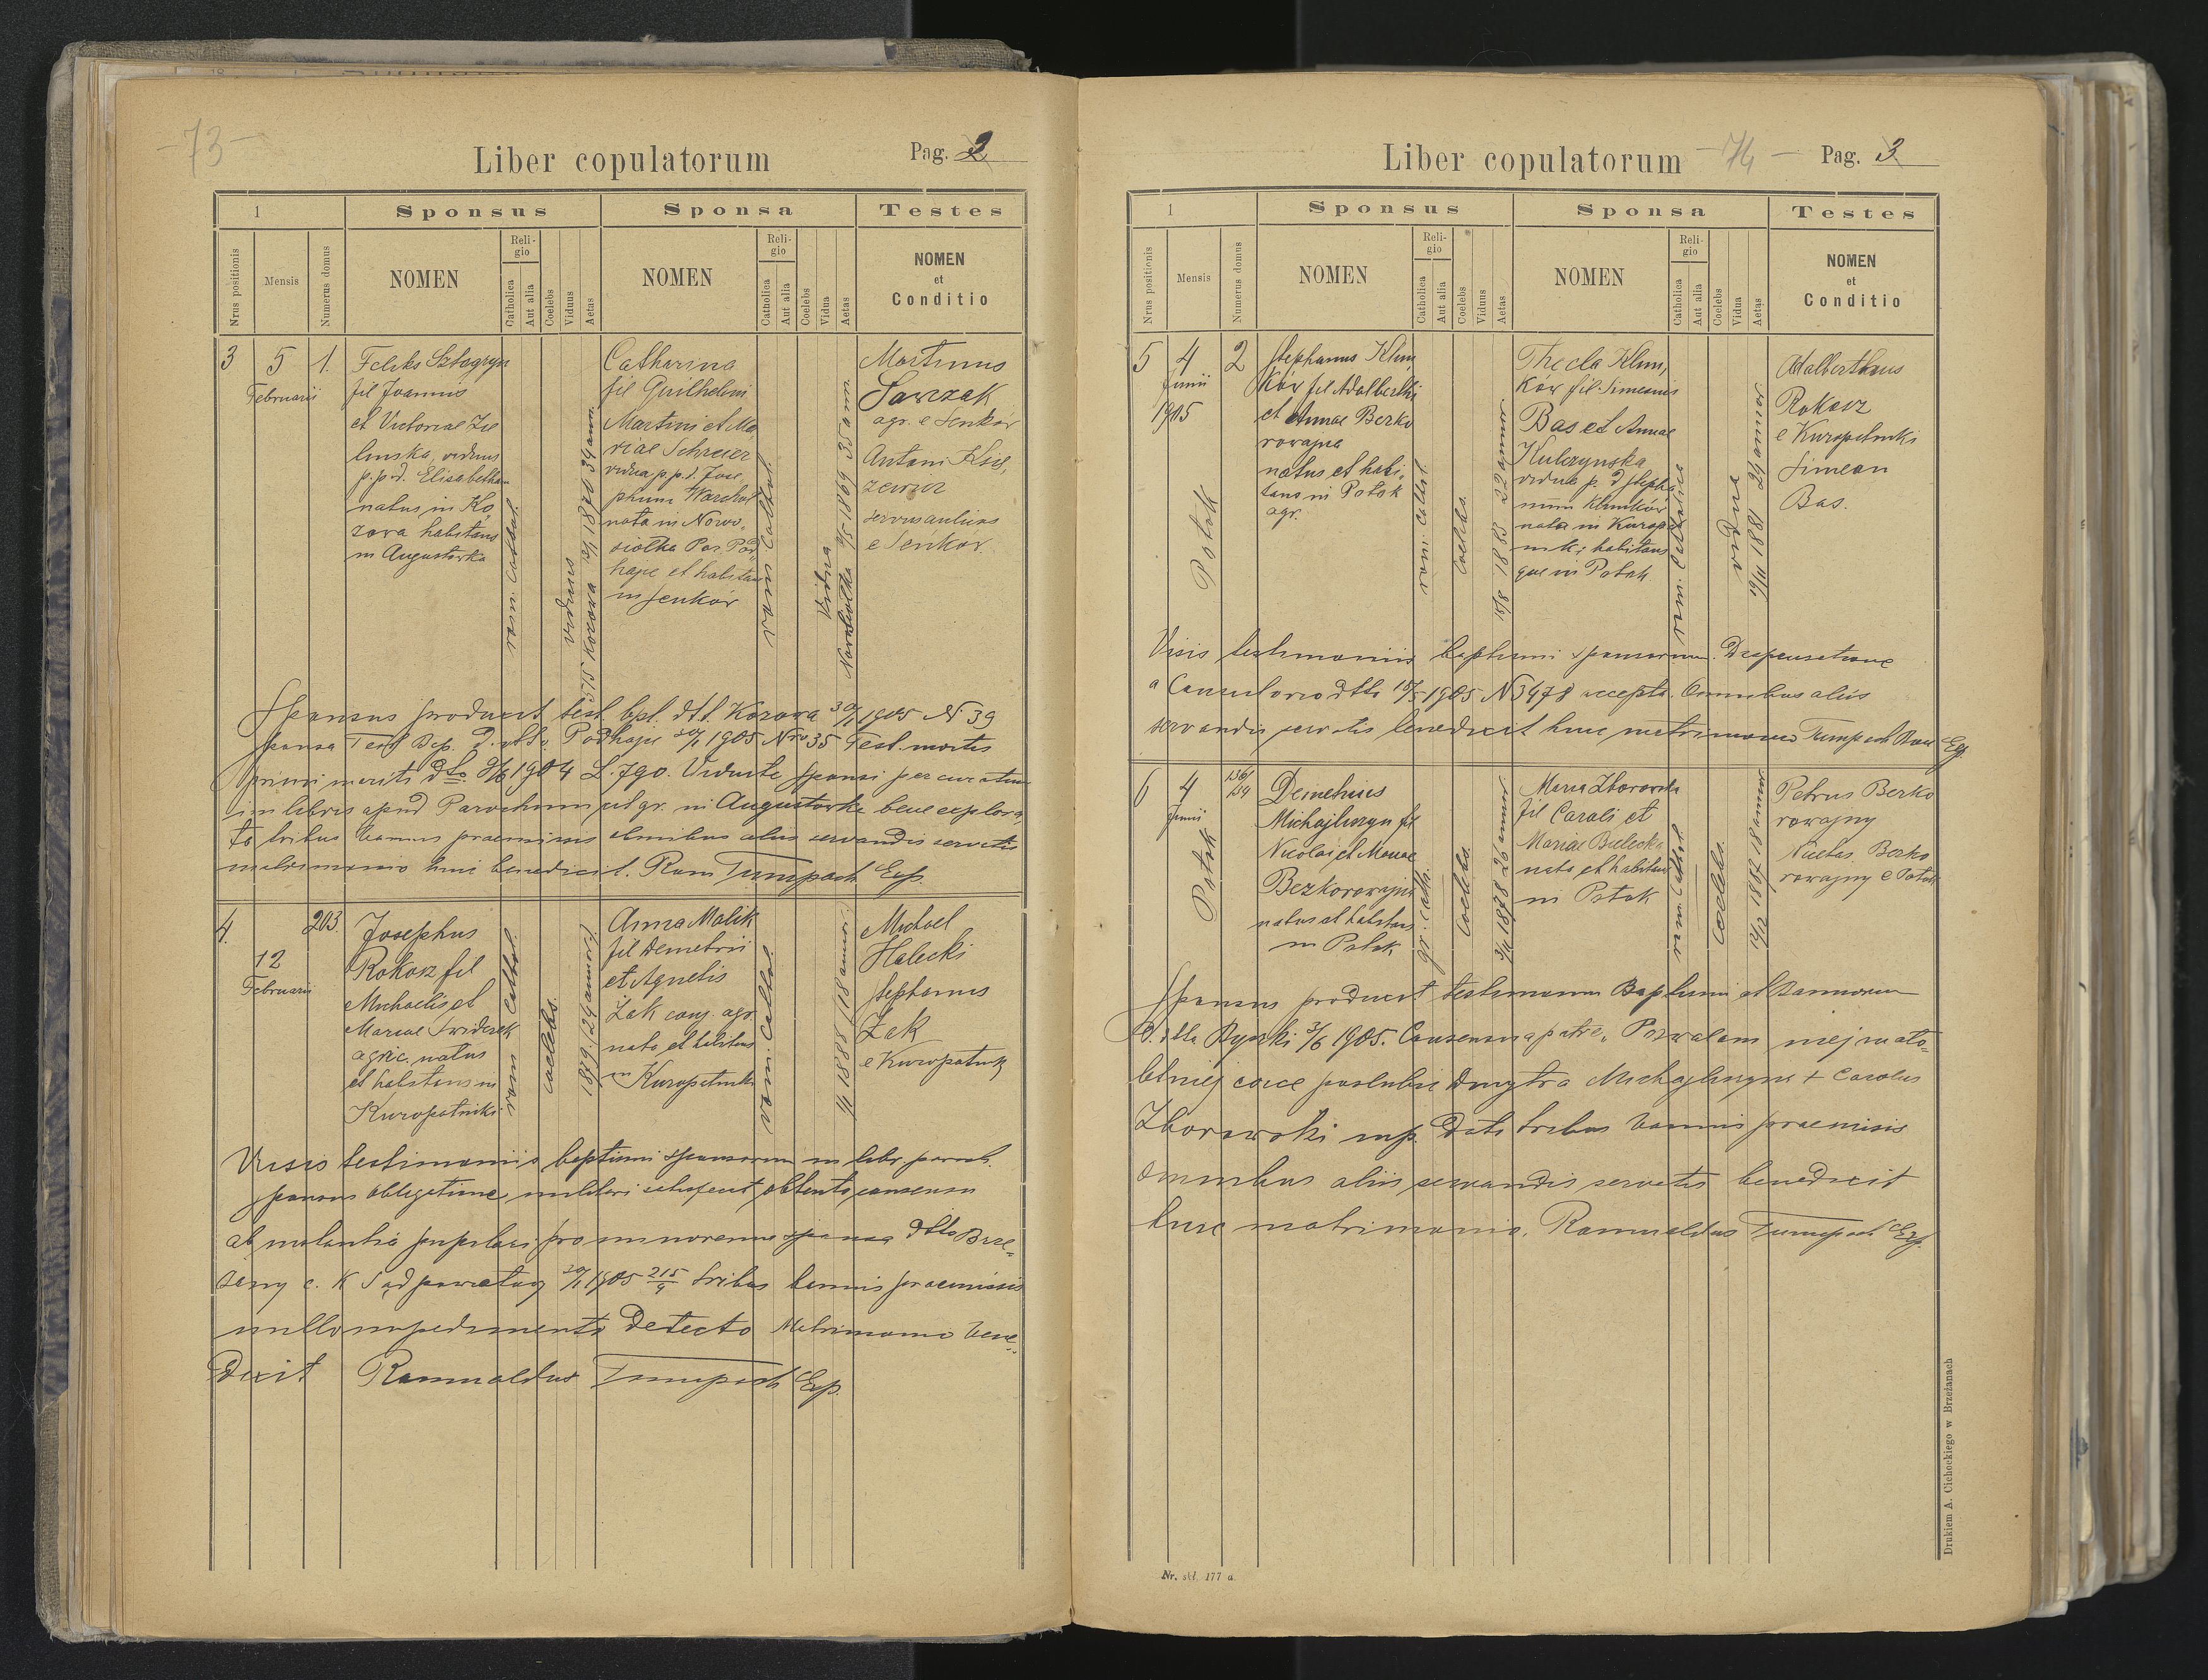 -73-
Liber copulatorum
Pag. 2
1
Sponsus
Sponsa
Testes
Nrus positionis
Mensis
Numerus domus
NOMEN
Reli-
gio
Catholica
Aut alia
Coelebs
Viduus
Aetas
NOMEN
Reli-
gio
Catholica
Aut alia
Coelebs
Vidua
Aetas
NOMEN
et
Conditio
3
5
Februarii
1.
Feliks Sztogryn
fil Joannis
et Victoriae Zie
linska, viduus
p. p. d. Elisabetham
natus in Ko
zova habitans
in Augustówka
rom. cathol.
viduus
Kozova 1870 34 ann.
Catharina
fil Guilhelmi
Martini et Ma
riae Schreier
vidua p. p. d. Jose,
phum Warchoł
nata in Nowo,
siołka Par. Pod
hajce et habitans
in Senków
rom. cathol.
Vidua
Nowosiołka 1869 35 ann.
Martinus
Sawczak
agr. e Senków
Antoni Ksią,
servus
e Senków.
Sponsus producit test. bpt. dtt. Kozowa 30/1 1905 N. 39
Sponsa Test Bap. d. dtto Podhajce 20/1 1905 Nro 35 Test. mortis
primi mariti dto 1904 L. 790. Sponsi per
in libris apud Parochum rit gr. in Augustówka bene explora,
to tribus bannis praemissis omnibus aliis servandis servatis
matrimonio huic benedicit. Rom Tumpach Exp.
4.
12
Februarii
203.
Josephus
Rokosz fil
Michaelis et
Mariae Swiderek
agric. natus
et habitans in
Kuropatniki
rom cathol.
coelebs.
1879. 24 annor.
Anna Malik
fil Demetrii
et Agnetis
Żak conj. agr.
nata et habitans
in Kuropatniki
rom. cathol.
1888 18 annor.
Michael
Halecki
Stephanus
Żak
e Kuropatnik
Visis testimoniis baptismi sponsorum in libr paroch.
sponsus obligatione militari satisfecit, obtento consensu
ab instantia pupilari pro minorenne sponsa dtto Brze-
żany c. k Sąd powiatowy 20/1 1905 215/4 tribus bannis praemissis
nullo impedimento detecto Matrimonio bene-
dixit Romualdus Tumpach Exp.
Liber copulatorum
-74-
Pag. 3
1
Sponsus
Sponsa
Testes
Nrus positionis
Mensis
Numerus domus
NOMEN
Reli-
gio
Catholica
Aut alia
Coelebs
Viduus
Aetas
NOMEN
Reli-
gio
Catholica
Aut alia
Coelebs
Vidua
Aetas
NOMEN
et
Conditio
5
4
Junii
1905
Potok
2
Stephanus Klim,
ków fil Adalberthi
et Annae Berko
rowajna
natus et habi,
tans in Potok
agr.
rom. cathol.
Coelebs.
18/8 1883 22 annor.
Thecla Klim,
ków fil. Simeonis
Bas et Annae
Kulczynska
vidua p. d Stepha
num Klimków
nata in Kuropa
tniki habitans
que in Potok
rom. cathol.
vidua
1881 24 annor
Adalberthus
Rokosz
e Kuropatniki
Simeon
Bas.
Visis testimoniis baptismi sponsorum. Dispensatione
a Consistorio dtto 18/5 1905 N 3478 accepta. Omnibus aliis
servandis servatis benedixit huic matrimonio Tumpach Rom Exp.
6
4
Junii
Potok
136/
Demetrius
Michajliszyn fil
Nicolai et Mariae
Bezkorowajna
natus et habitans
in Potok
gr. cath.
Coelebs.
1878 26 annor.
Maria Zborowska
fil Caroli et
Mariae Bielecka
nata et habitans
in Potok
rom. cathol.
Coelebs.
1887 18 annor
Petrus Berko
rowajny
Nicetas Berko
rowajny e Potok
Sponsus producit testimonium Baptismi et Bannorum
d. dtto Ryszki 3/6 1905. Consensus a patre „Pozwalam mej mało-
letniej córce poslubić Dmytra Michajliszyna + Carolus
Zborowski mp. Dato tribus bannis praemissis
omnibus aliis servandis servatis benedixit
huic matrimonio. Romualdus Tumpach Exp.
Nr. skł. 177 a.
Drukiem A. Cichockiego w Brzeżanach